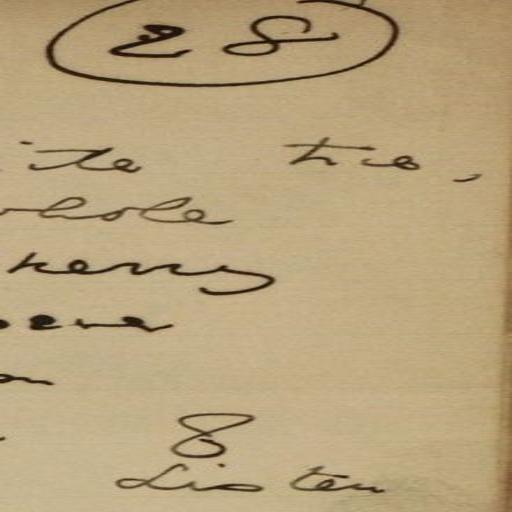 28
ite tie,
whole
merry
ever
on
8
Listen